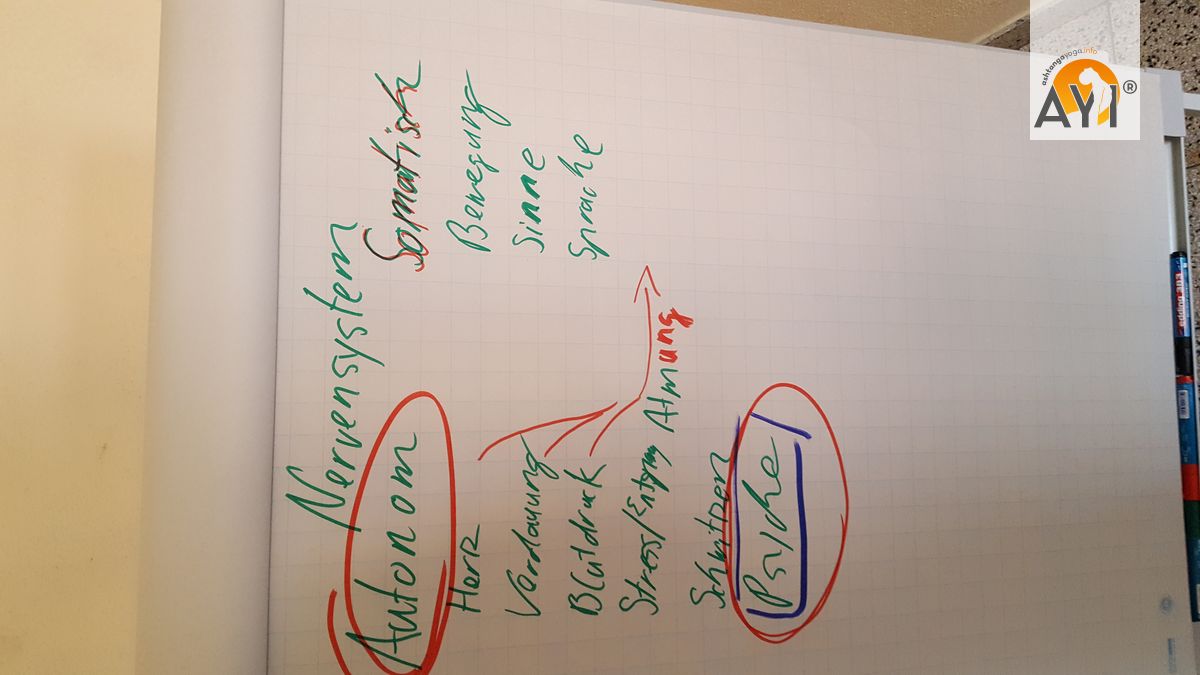 Nervensystem
Autonom Somatisch
Herz Bewegung
Verdauung Sinne
Blutdruck Sprache
Stress/Entspng Atmung
Schwitzen
Psyche
ashtangayoga.info
AYI®
edding 383